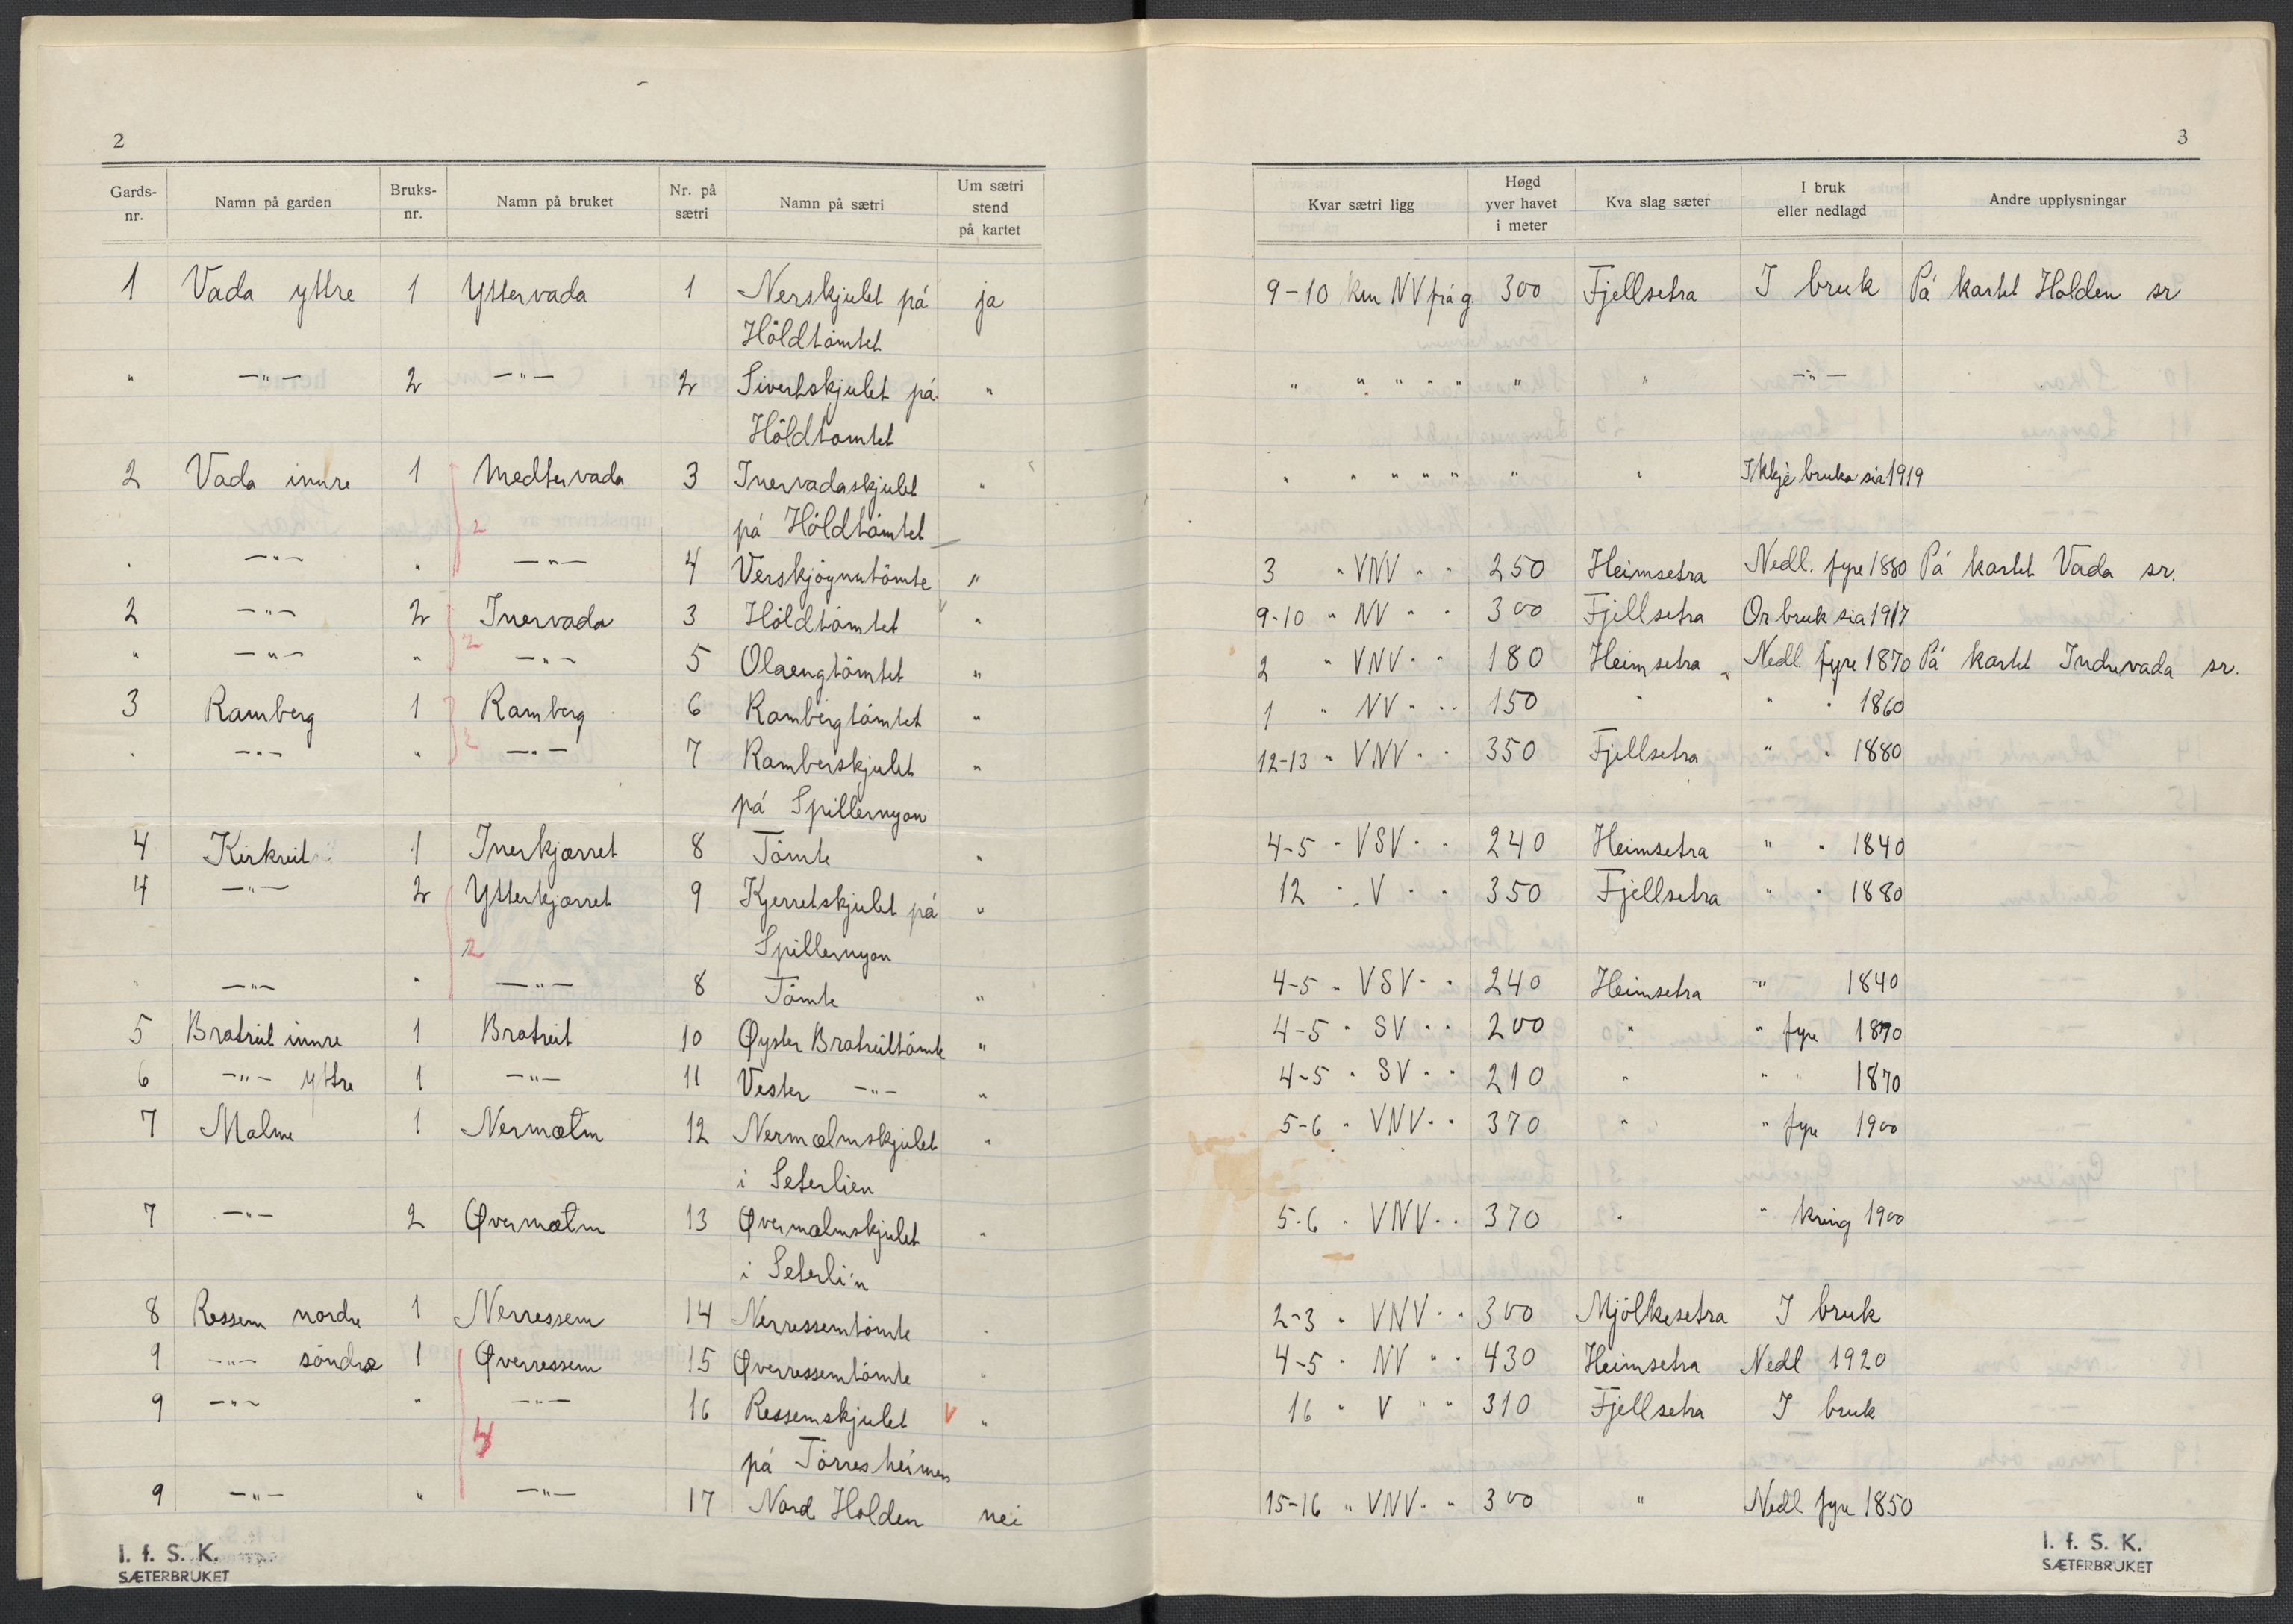 2
Gards-nr. Namn på garden Bruks-nr. Namn på bruket Nr. på sætri Namn på sætri Um sætri stend på kartet
1 Vada yttre 1 Yttervada 1 Nerskjulet på ja
Höldtömtet
" —"— 2 —"— 2 Sivertskjulet på "
Höldtomtet
2 Vada innre 1 Medtervada 3 Inervadaskjulet "
på Höldtömtet
" —"— " —"— 4 Verskjögnutömte "
2 —"— 2 Inervada 3 Höldtömtet "
" —"— " —"— 5 Olaengtömtet "
3 Ramberg 1 Ramberg 6 Rambergtömtet "
" —"— " —"— 7 Ramberskjulet "
på Spillernyon
4 Kirkreit 1 Inerkjærret 8 Tömte "
4 —"— 2 Ytterkjærret 9 Kjerretskjulet på "
2 Spillernyon
" —"— " —"— 8 Tömte "
5 Bratreit innre 1 Bratreit 10 Øyster Bratreittömte "
6 —"— yttre 1 —"— 11 Vester —"— "
7 Malme 1 Nermælm 12 Nermælmskjulet "
i Seterlien
7 —"— 2 Øvermælm 13 Øvermælmskjulet "
i Seterli'n
8 Ressem nordre 1 Nerressem 14 Nerressemtömte "
9 —"— söndre 1 Øverressem 15 Øverressemtömte "
9 —"— " —"— 16 Ressemskjulet V "
på Törresheimen
9 —"— " —"— 17 Nord Holden nei
I. f. S. K.
SÆTERBRUKET
3
Kvar sætri ligg Høgd yver havet i meter Kva slag sæter I bruk eller nedlagd Andre upplysningar
9-10 km NV frå g. 300 Fjellsetra I bruk På kartet Holden sr
" " " " " " " —"—
" " " " " " " Ikkje bruka sia 1919
3 " VNV " " 250 Heimsetra Nedl. fyre 1880 På kartet Vada sr.
9-10 " NV " " 300 Fjellsetra Or bruk sia 1917
2 " VNV " " 180 Heimsetra Nedl. fyre 1870 På kartet Indrevada sr.
1 " NV " " 150 " " " 1860
12-13 " VNV " " 350 Fjellsetra " " 1880
4-5 " VSV " " 240 Heimsetra " " 1840
12 " V " " 350 Fjellsetra " " 1880
4-5 " VSV " " 240 Heimsetra " 1840
4-5 " SV " " 200 " " fyre 1870
4-5 " SV " " 210 " " " 1870
5-6 " VNV " " 370 " " fyre 1900
5-6 " VNV " " 370 " " kring 1900
2-3 " VNV " " 300 Mjölkesetra I bruk
4-5 " NV " " 430 Heimsetra Nedl 1920
16 " V " " 310 Fjellsetra I bruk
15-16 " VNV " " 300 " Nedl fyre 1850
I. f. S. K.
SÆTERBRUKET